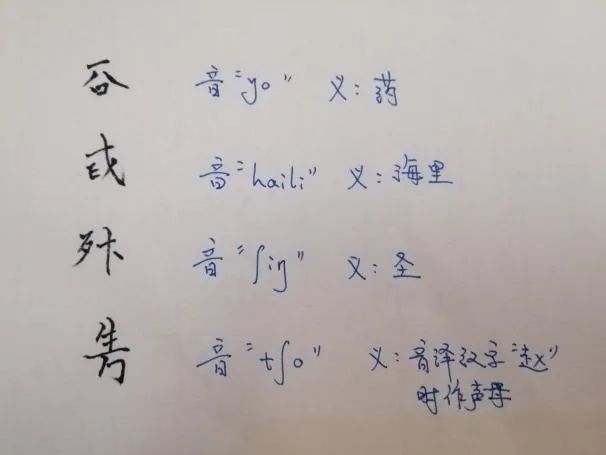 音"yo" 义:药
音"haili" 义:海里
音"ʃiŋ" 义:圣
音"tʃo" 义:音译汉字"赵"
时作声母